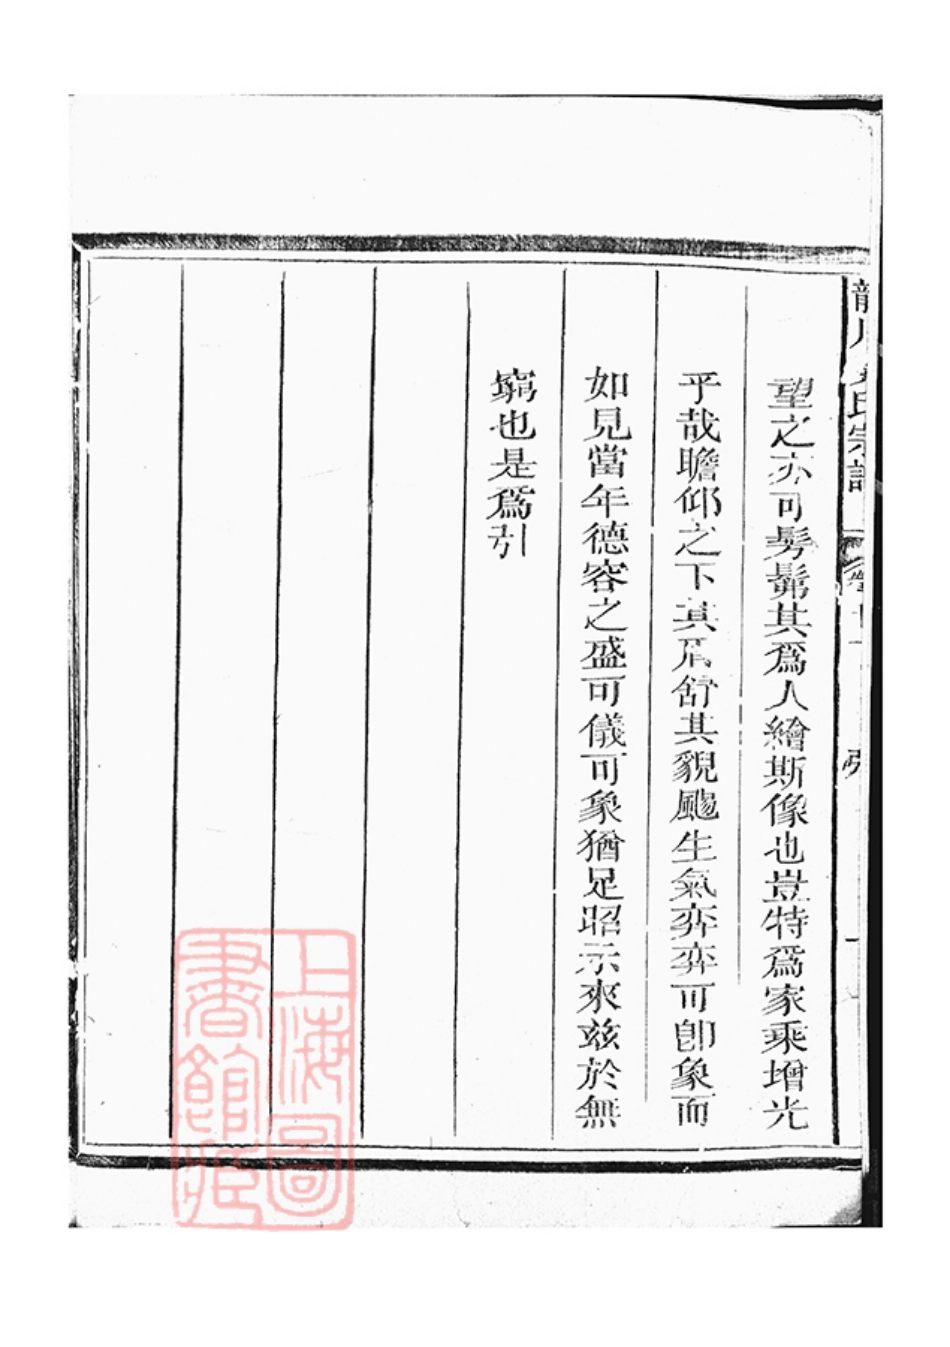 望之亦可髣髴其爲人繪斯像也豈特爲家乘增光
乎哉瞻仰之下其眉舒其貌颺生氣弈弈可卽象而
如見當年德容之盛可儀可象猶足昭示來兹於無
窮也是爲引
氏宗譜
上海圖
書館藏